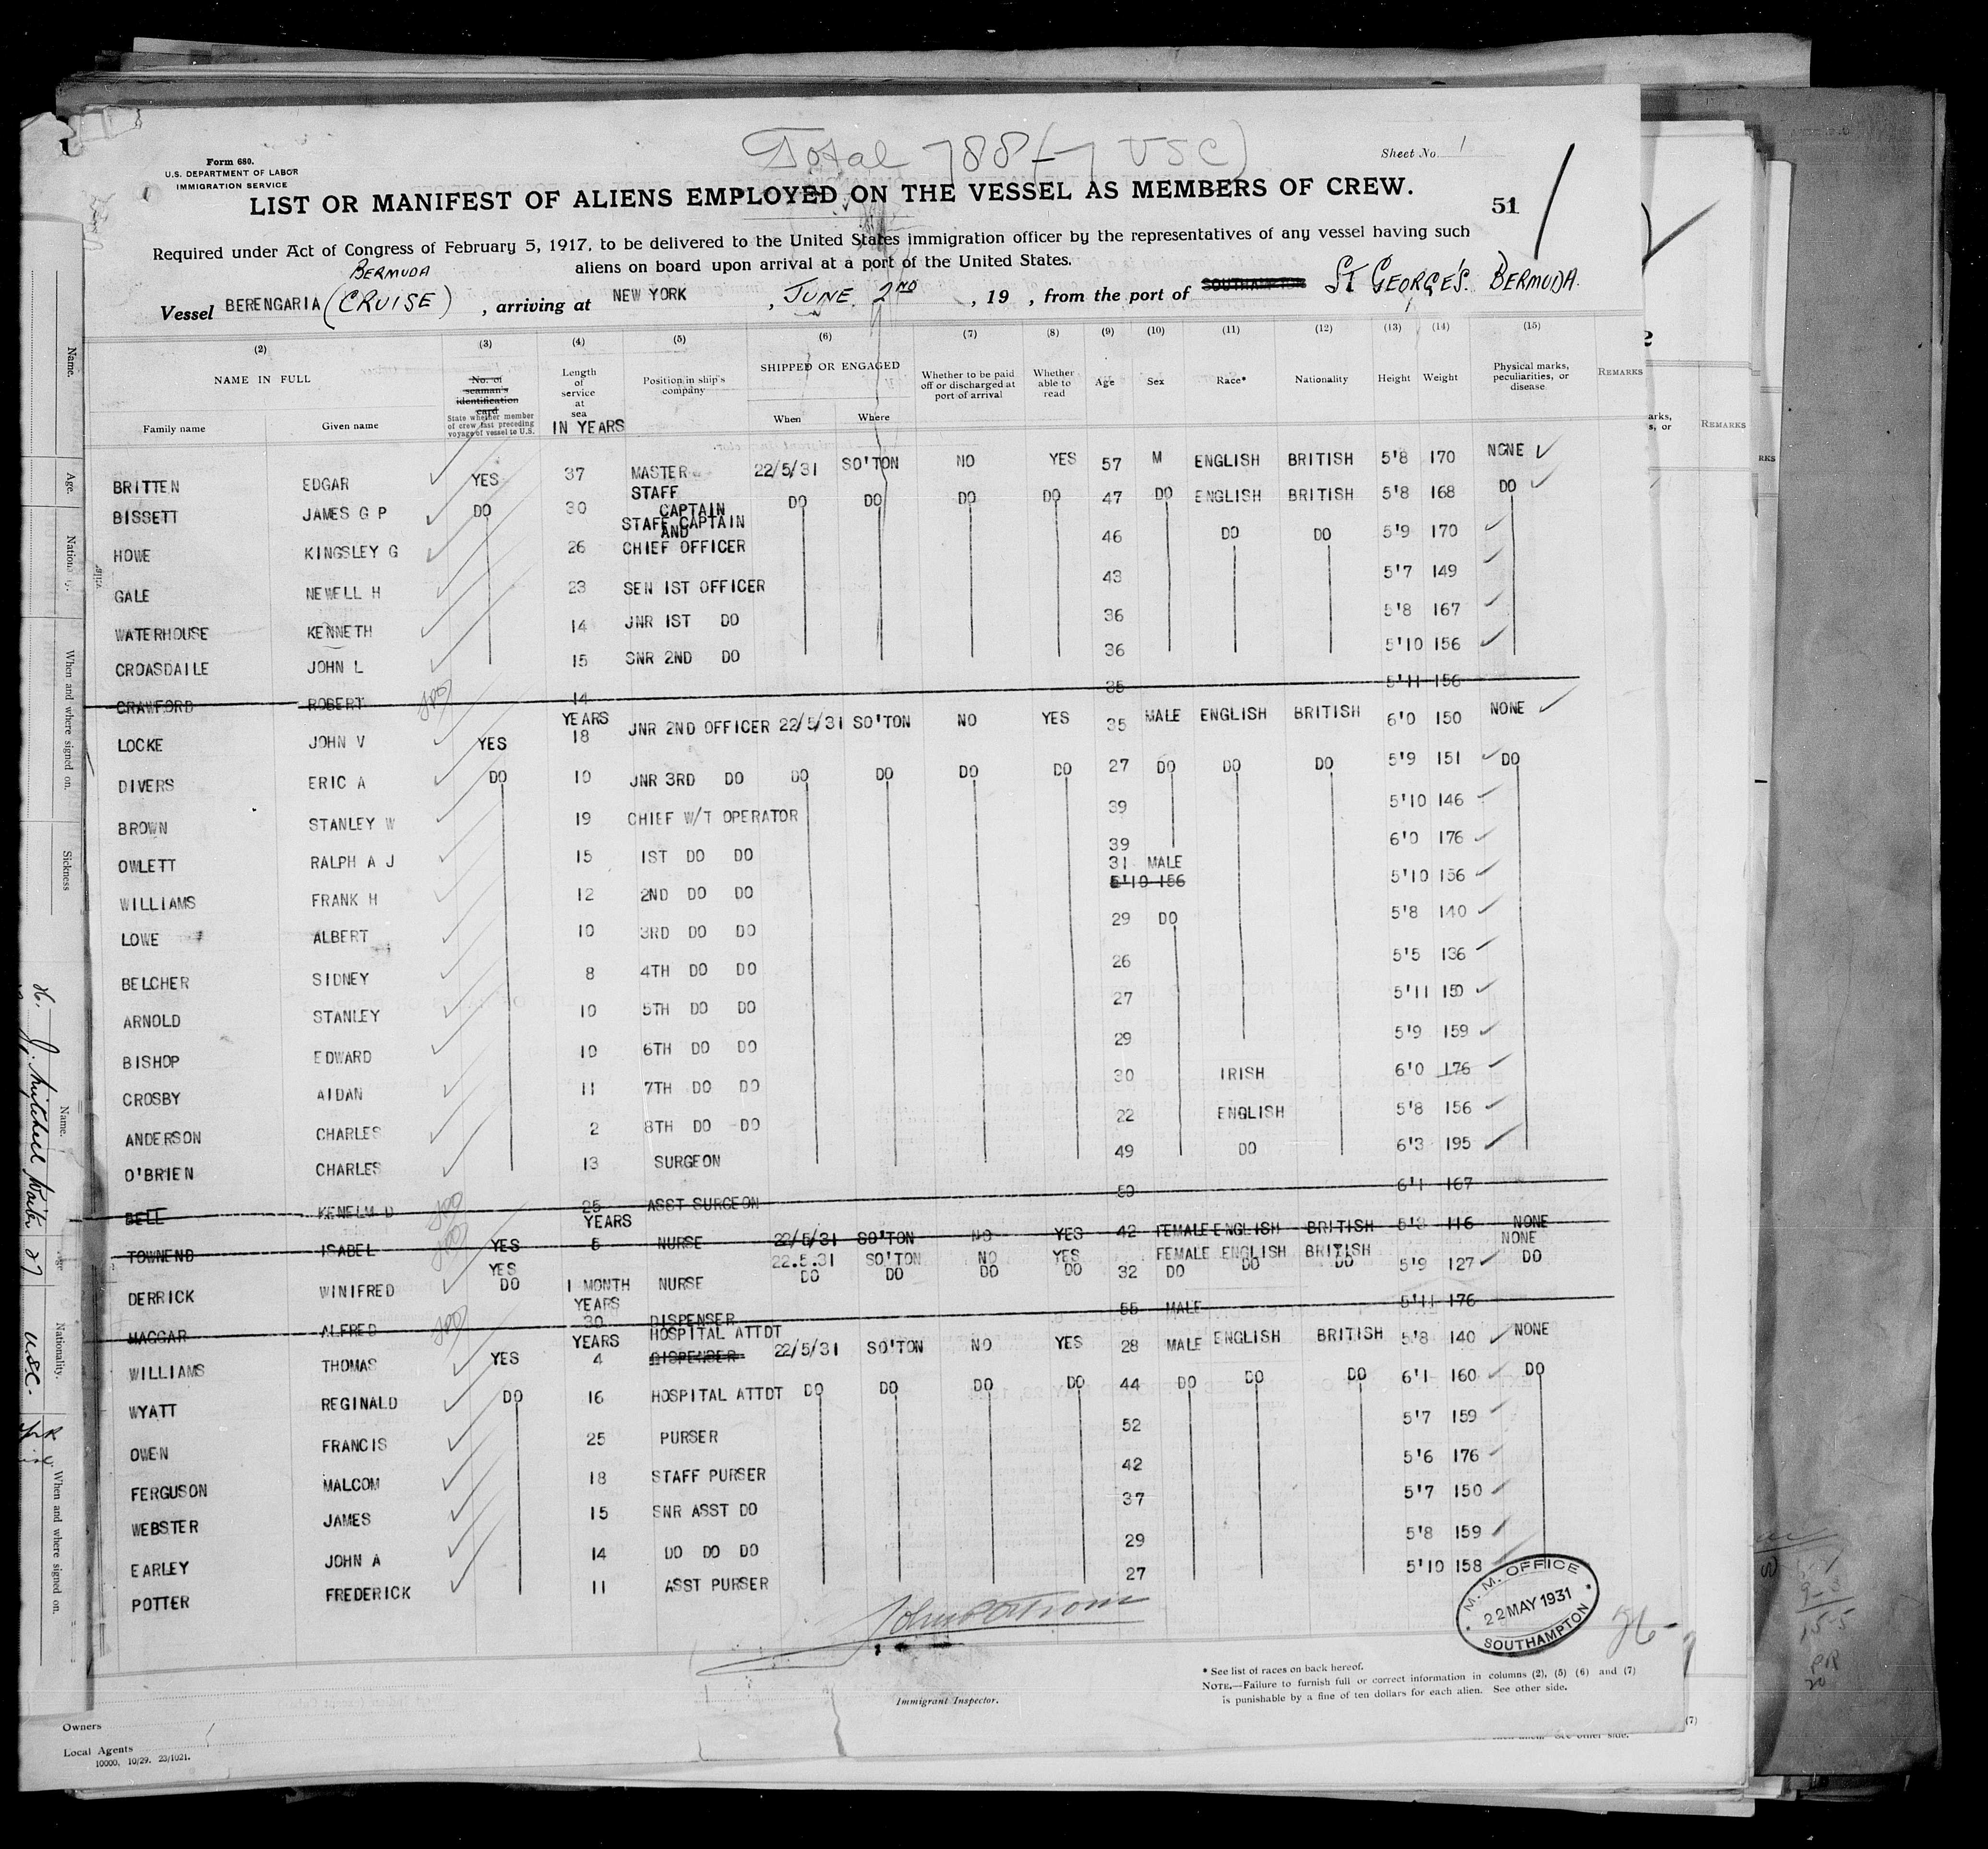 Total 788 (-7 USC)
Form 680.
U.S. DEPARTMENT OF LABOR
IMMIGRATION SERVICE
Sheet No. 1
LIST OR MANIFEST OF ALIENS EMPLOYED ON THE VESSEL AS MEMBERS OF CREW.
51
Required under Act of Congress of February 5, 1917, to be delivered to the United States immigration officer by the representatives of any vessel having such
aliens on board upon arrival at a port of the United States.
Vessel BERENGARIA (BERMUDA CRUISE), arriving at NEW YORK, JUNE 2ND, 19 , from the port of SOUTHAMPTON ST GEORGE'S. BERMUDA.
(2) (3) (4) (5) (6) (7) (8) (9) (10) (11) (12) (13) (14) (15)
NAME IN FULL
Family name
Given name
No. of seaman's identification card
State whether member of crew last preceding voyage of vessel to U.S.
Length of service at sea
IN YEARS
Position in ship's company
SHIPPED OR ENGAGED
When
Where
Whether to be paid off or discharged at port of arrival
Whether able to read
Age
Sex
Race*
Nationality
Height
Weight
Physical marks, peculiarities, or disease
REMARKS
BRITTEN EDGAR YES 37 MASTER 22/5/31 SO'TON NO YES 57 M ENGLISH BRITISH 5'8 170 NONE
BISSETT JAMES G P DO 30 STAFF CAPTAIN DO DO DO DO 47 DO ENGLISH BRITISH 5'8 168 DO
HOWE KINGSLEY G 26 STAFF CAPTAIN AND CHIEF OFFICER 46 DO DO 5'9 170
GALE NEWELL H 23 SEN 1ST OFFICER 43 5'7 149
WATERHOUSE KENNETH 14 JNR 1ST DO 36 5'8 167
CROASDAILE JOHN L 15 SNR 2ND DO 36 5'10 156
CRAWFORD ROBERT 14 35 5'11 156
LOCKE JOHN V YES YEARS 18 JNR 2ND OFFICER 22/5/31 SO'TON NO YES 35 MALE ENGLISH BRITISH 6'0 150 NONE
DIVERS ERIC A DO 10 JNR 3RD DO DO DO DO DO 27 DO DO DO 5'9 151 DO
BROWN STANLEY W 19 CHIEF W/T OPERATOR 39 5'10 146
OWLETT RALPH A J 15 1ST DO DO 39 6'0 176
WILLIAMS FRANK H 12 2ND DO DO 31 MALE 5'10 156 5'10 156
LOWE ALBERT 10 3RD DO DO 29 DO 5'8 140
BELCHER SIDNEY 8 4TH DO DO 26 5'5 136
ARNOLD STANLEY 10 5TH DO DO 27 5'11 150
BISHOP EDWARD 10 6TH DO DO 29 5'9 159
CROSBY AIDAN 11 7TH DO DO 30 IRISH 6'0 176
ANDERSON CHARLES 2 8TH DO DO 22 ENGLISH 5'8 156
O'BRIEN CHARLES 13 SURGEON 49 DO 6'3 195
BELL KENELM D 25 ASST SURGEON 50 6'1 167
TOWNEND ISABEL YES YEARS 5 NURSE 22/5/31 SO'TON NO YES 42 FEMALE ENGLISH BRITISH 5'3 116 NONE
YES 22.5.31 SO'TON NO YES FEMALE ENGLISH BRITISH NONE
DERRICK WINIFRED DO 1 MONTH NURSE DO DO DO DO 32 DO DO DO 5'9 127 DO
HAGGAR ALFRED YEARS 30 DISPENSER 55 MALE 5'11 176
WILLIAMS THOMAS YES YEARS 4 HOSPITAL ATTDT DISPENSER 22/5/31 SO'TON NO YES 28 MALE ENGLISH BRITISH 5'8 140 NONE
WYATT REGINALD DO 16 HOSPITAL ATTDT DO DO DO DO 44 DO DO DO 6'1 160 DO
OWEN FRANCIS 25 PURSER 52 5'7 159
FERGUSON MALCOM 18 STAFF PURSER 42 5'6 176
WEBSTER JAMES 15 SNR ASST DO 37 5'7 150
EARLEY JOHN A 14 DO DO DO 29 5'8 159
POTTER FREDERICK 11 ASST PURSER 27 5'10 158
M. M. OFFICE
22 MAY 1931
SOUTHAMPTON
26-
Immigrant Inspector.
* See list of races on back hereof.
NOTE.—Failure to furnish full or correct information in columns (2), (5) (6) and (7)
is punishable by a fine of ten dollars for each alien. See other side.
Owners
Local Agents
10000. 10/29. 23/1021.
Name.
Age.
Nationality.
When and where signed on.
Sickness
Name.
Age
Nationality.
When and where signed on.
J. Mitchell Waiter 27 U.S.C.
REMARKS
(7)